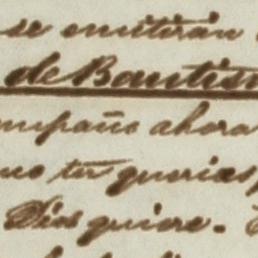 se emitirán
de Bautis
mpaño ahora
no tu querias
Dios quiere.